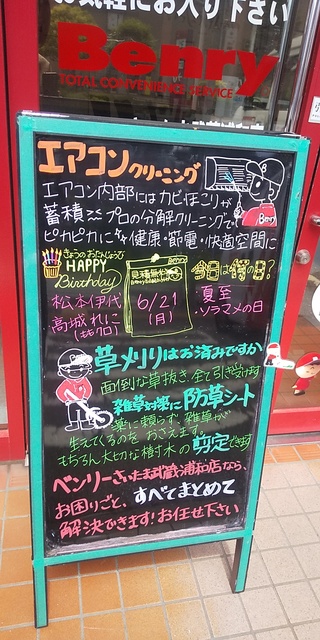 お気軽にお入り下さい
Benry
TOTAL CONVENIENCE SERVICE
エアコンクリーニング
エアコン内部にはカビほこりが
蓄積 プロの分解クリーニングで
ピカピカに 健康・節電・快適空間に
Benry
きょうのおたんじょうび
HAPPY
Birthday
松本伊代
高城れに
(ももクロ)
見積無料
Benry
6/21
(月)
今日は何の日?
・夏至
・ソラマメの日
草刈りはお済みですか
面倒な草抜き、全て引き受けます
雑草対策に防草シート
薬に頼らず、雑草が
生えてくるのを おさえます
もちろん大切な樹木の剪定できます
ベンリーさいたま武蔵浦和店なら、
お困りごと、すべてまとめて
解決できます!お任せ下さい